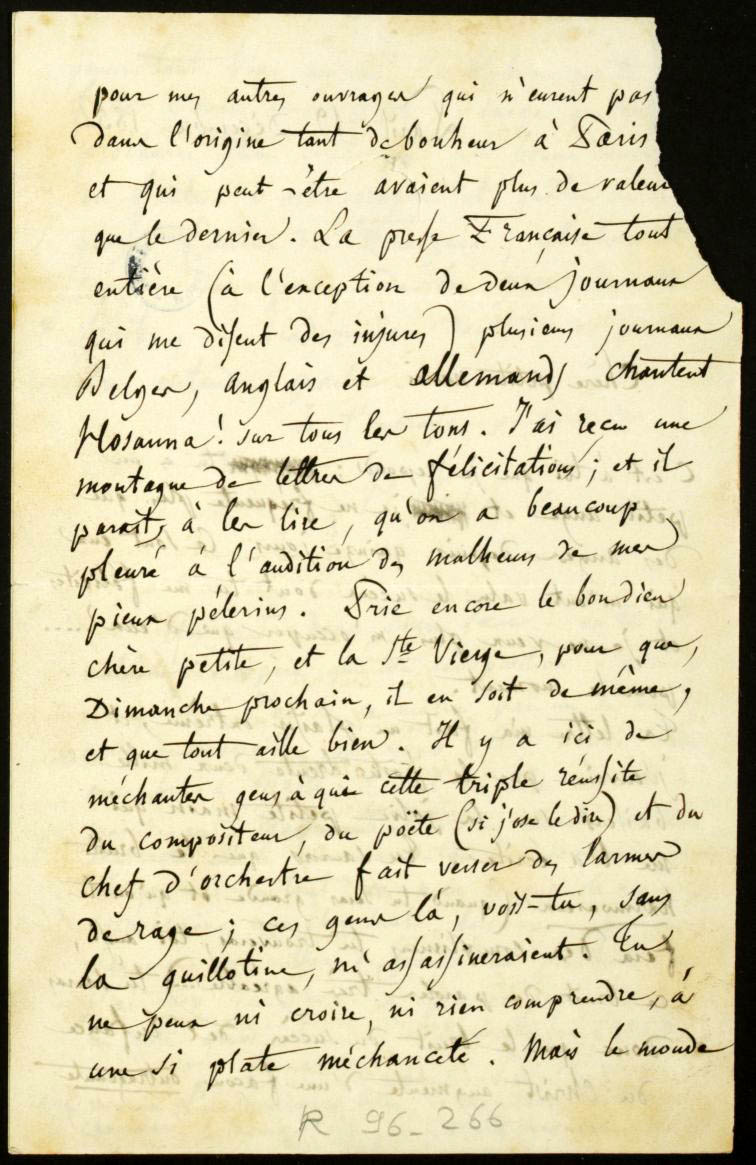 pour mes autres ouvrages qui n'eurent pas
dans l'origine tant de bonheur à Paris
et qui peut-être avaient plus de valeur
que le dernier. La presse Française tout
entière (à l'exception de deux journaux
qui me disent des injures) plusieurs journaux
Belges, anglais et allemands chantent
Hosanna! sur tous les tons. J'ai reçu une
montagne de lettres de félicitations; et il
parait, à les lire, qu'on a beaucoup
pleuré à l'audition des malheurs de mes
pieux pélerins. Prie encore le bon dieu
chère petite, et la Ste Vierge, pour que,
Dimanche prochain, il en soit de même,
et que tout aille bien. Il y a ici de
méchantes gens à qui cette triple réussite
du compositeur, du poëte (si j'ose le dire) et du
chef d'orchestre fait verser des larmes
de rage; ces gens là, vois-tu, sans
la guillotine, m'assassineraient. Tu
ne peux ni croire, ni rien comprendre, à
une si plate méchanceté. Mais le monde
R 96-266